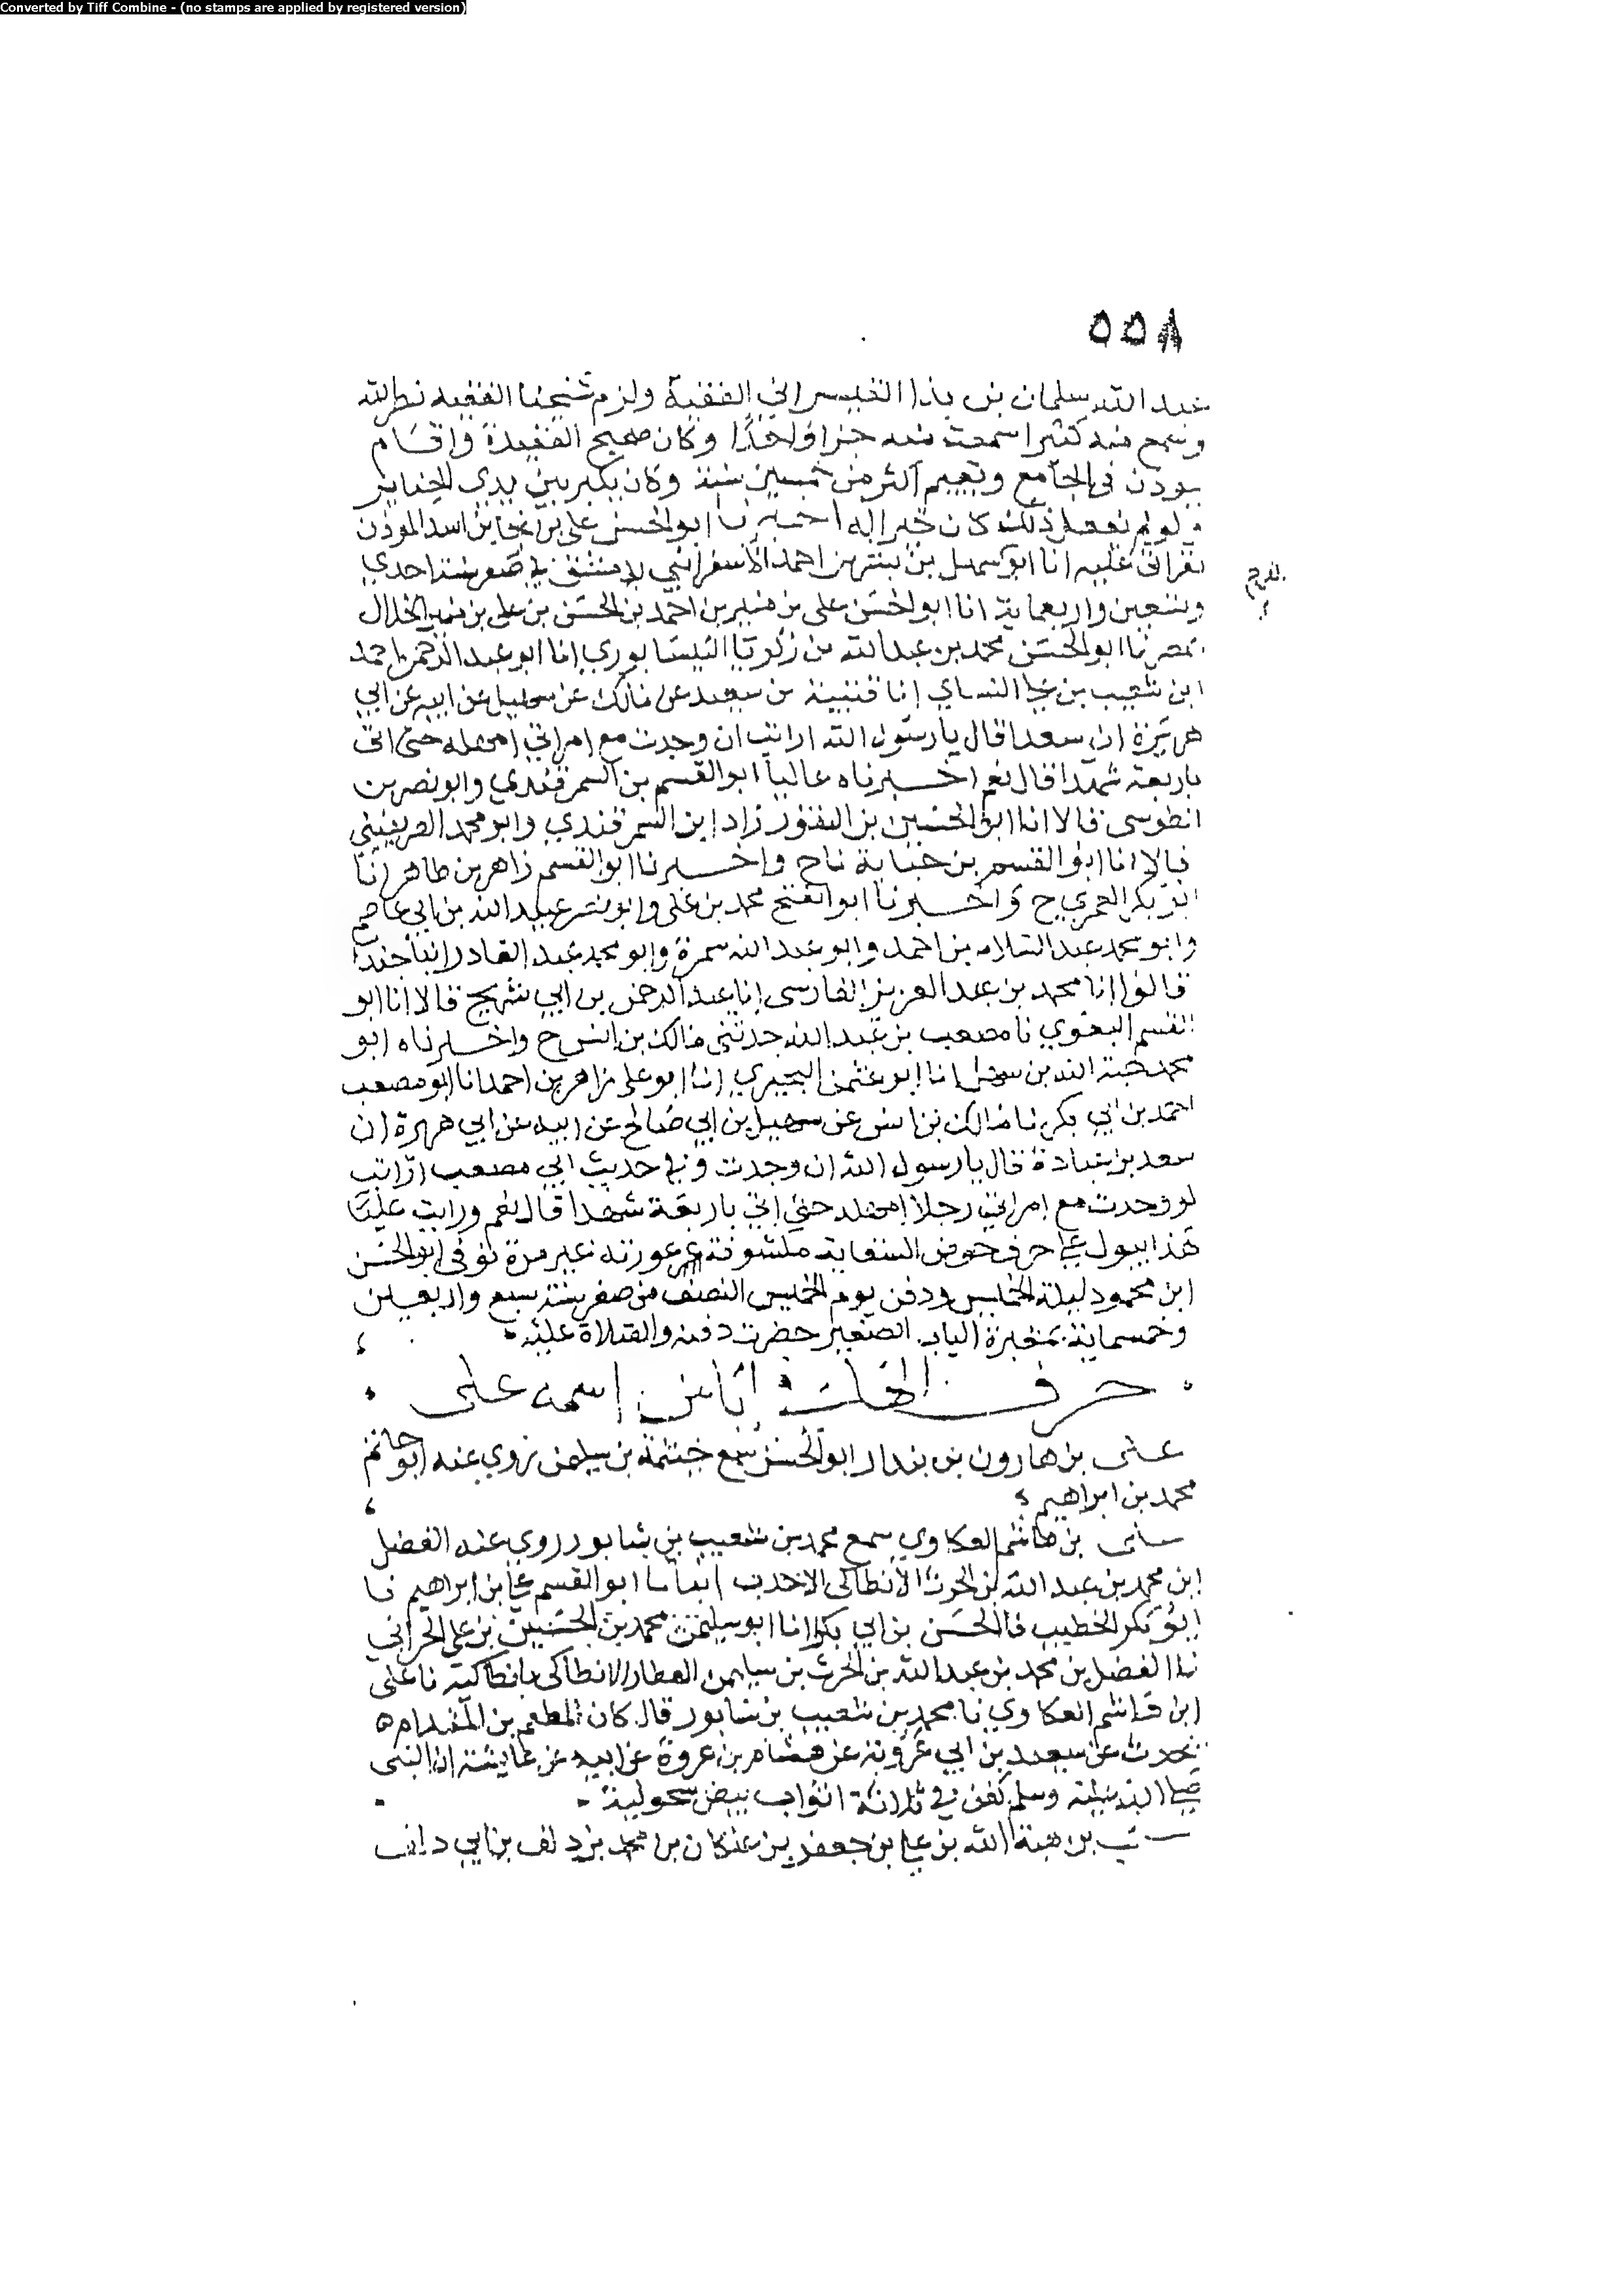 Converted by Tiff Combine - (no stamps are applied by registered version)
٥٥٨
عبد الله سلمان بن الفقيه ولزم شيخنا الفقيه نصر الله
وسمع منه كثيرا سمعت منه جزا واحدا وكان صحيح العقيدة واقام
يوذن في الجامع ويقيم اكثر من خمسين سنة وكان يكبر بين يدي الجنايز
ولو لم يفعل ذلك كان خيرا له اخبرنا ابو الحسن علي بن اسد الموذن
بقراتي عليه انا ابو سهل بن بشر بن احمد الاسفرايني بدمشق في صفر سنة احدي
وتسعين واربعماية انا ابو الحسن علي بن منير بن احمد بن الحسن بن علي بن منير الخلال
بمصر نا ابو الحسن محمد بن عبد الله بن زكريا النيسابوري انا ابو عبد الرحمن احمد
ابن شعيب بن علي النساي انا قتيبة بن سعيد عن مالك عن سهيل عن ابيه عن ابي
هريرة ان سعدا قال يا رسول الله ارايت ان وجدت مع امراتي امهله حتى اتى
باربعة شهدا قال نعم اخبرناه عاليا ابو القسم بن السمرقندي وابو نصر بن
الطوسي قالا انا ابو الحسين بن النقور زاد ابن السمرقندي وابو محمد الصريفيني
قالا انا ابو القسم بن حبابة نا ح واخبرنا ابو القسم زاهر بن طاهر انا
ابو بكر العمري ح واخبرنا ابو الفتح محمد بن علي وابو نصر عبيد الله بن ابي عاصم
وابو محمد عبد السلام بن احمد وابو عبد الله سمرة وابو محمد عبد القادر ابنا جندب
قالوا انا محمد بن عبد العزيز الفارسي انا عبد الرحمن بن ابي شريح قالا انا ابو
القسم البغوي نا مصعب بن عبد الله حدثني مالك بن انس ح واخبرناه ابو
محمد هبة الله بن سهل انا ابو عثمن البحيري انا ابو علي زاهر بن احمد انا ابو مصعب
احمد بن ابي بكر نا مالك بن انس عن سهيل بن ابي صالح عن ابيه عن ابي هريرة ان
سعد بن عبادة قال يا رسول الله ان وجدت وفي حديث ابي مصعب ارايت
لو وجدت مع امراتي رجلا امهله حتى اتي باربعة شهدا قال نعم ورايت عليا
هذا يبول علي حرف حوض السقاية مكشوفة عورته غير مرة توفي ابو الحسن
ابن محمود ليلة الخميس ودفن يوم الخميس النصف من صفر سنة سبع واربعين
وخمسماية بمقبرة الباب الصغير حضرت دفنه والصلاة عليه
حرف الهاء في اباء من اسمه على
على بن هارون بن بندار ابو الحسن سمع خيثمة بن سليمن روي عنه ابو حاتم
محمد بن ابراهيم
على بن هاشم العكاوي سمع محمد بن شعيب بن شابور روي عنه الفضل
ابن محمد بن عبد الله بن الحرث الانطاكي الاحدب انبانا ابو القسم علي بن ابراهيم نا
ابو بكر الخطيب نا الحسن بن ابي بكر انا ابو سليمن محمد بن الحسين بن علي الحراني
نا الفضل بن محمد بن عبد الله بن الحرث بن سليمن العطار الانطاكي بانطاكية نا على
ابن هاشم العكاوي نا محمد بن شعيب بن شابور قال كان المطعم بن المقدام
يحدث عن سعيد بن ابي عروبة عن هشام بن عروة عن ابيه عن عايشة ان النبي
صلى الله عليه وسلم كفن في ثلاثة اثواب بيض سحولية
بن هبة الله بن علي بن جعفر بن علكان بن محمد بن دلف بن ابي دلف